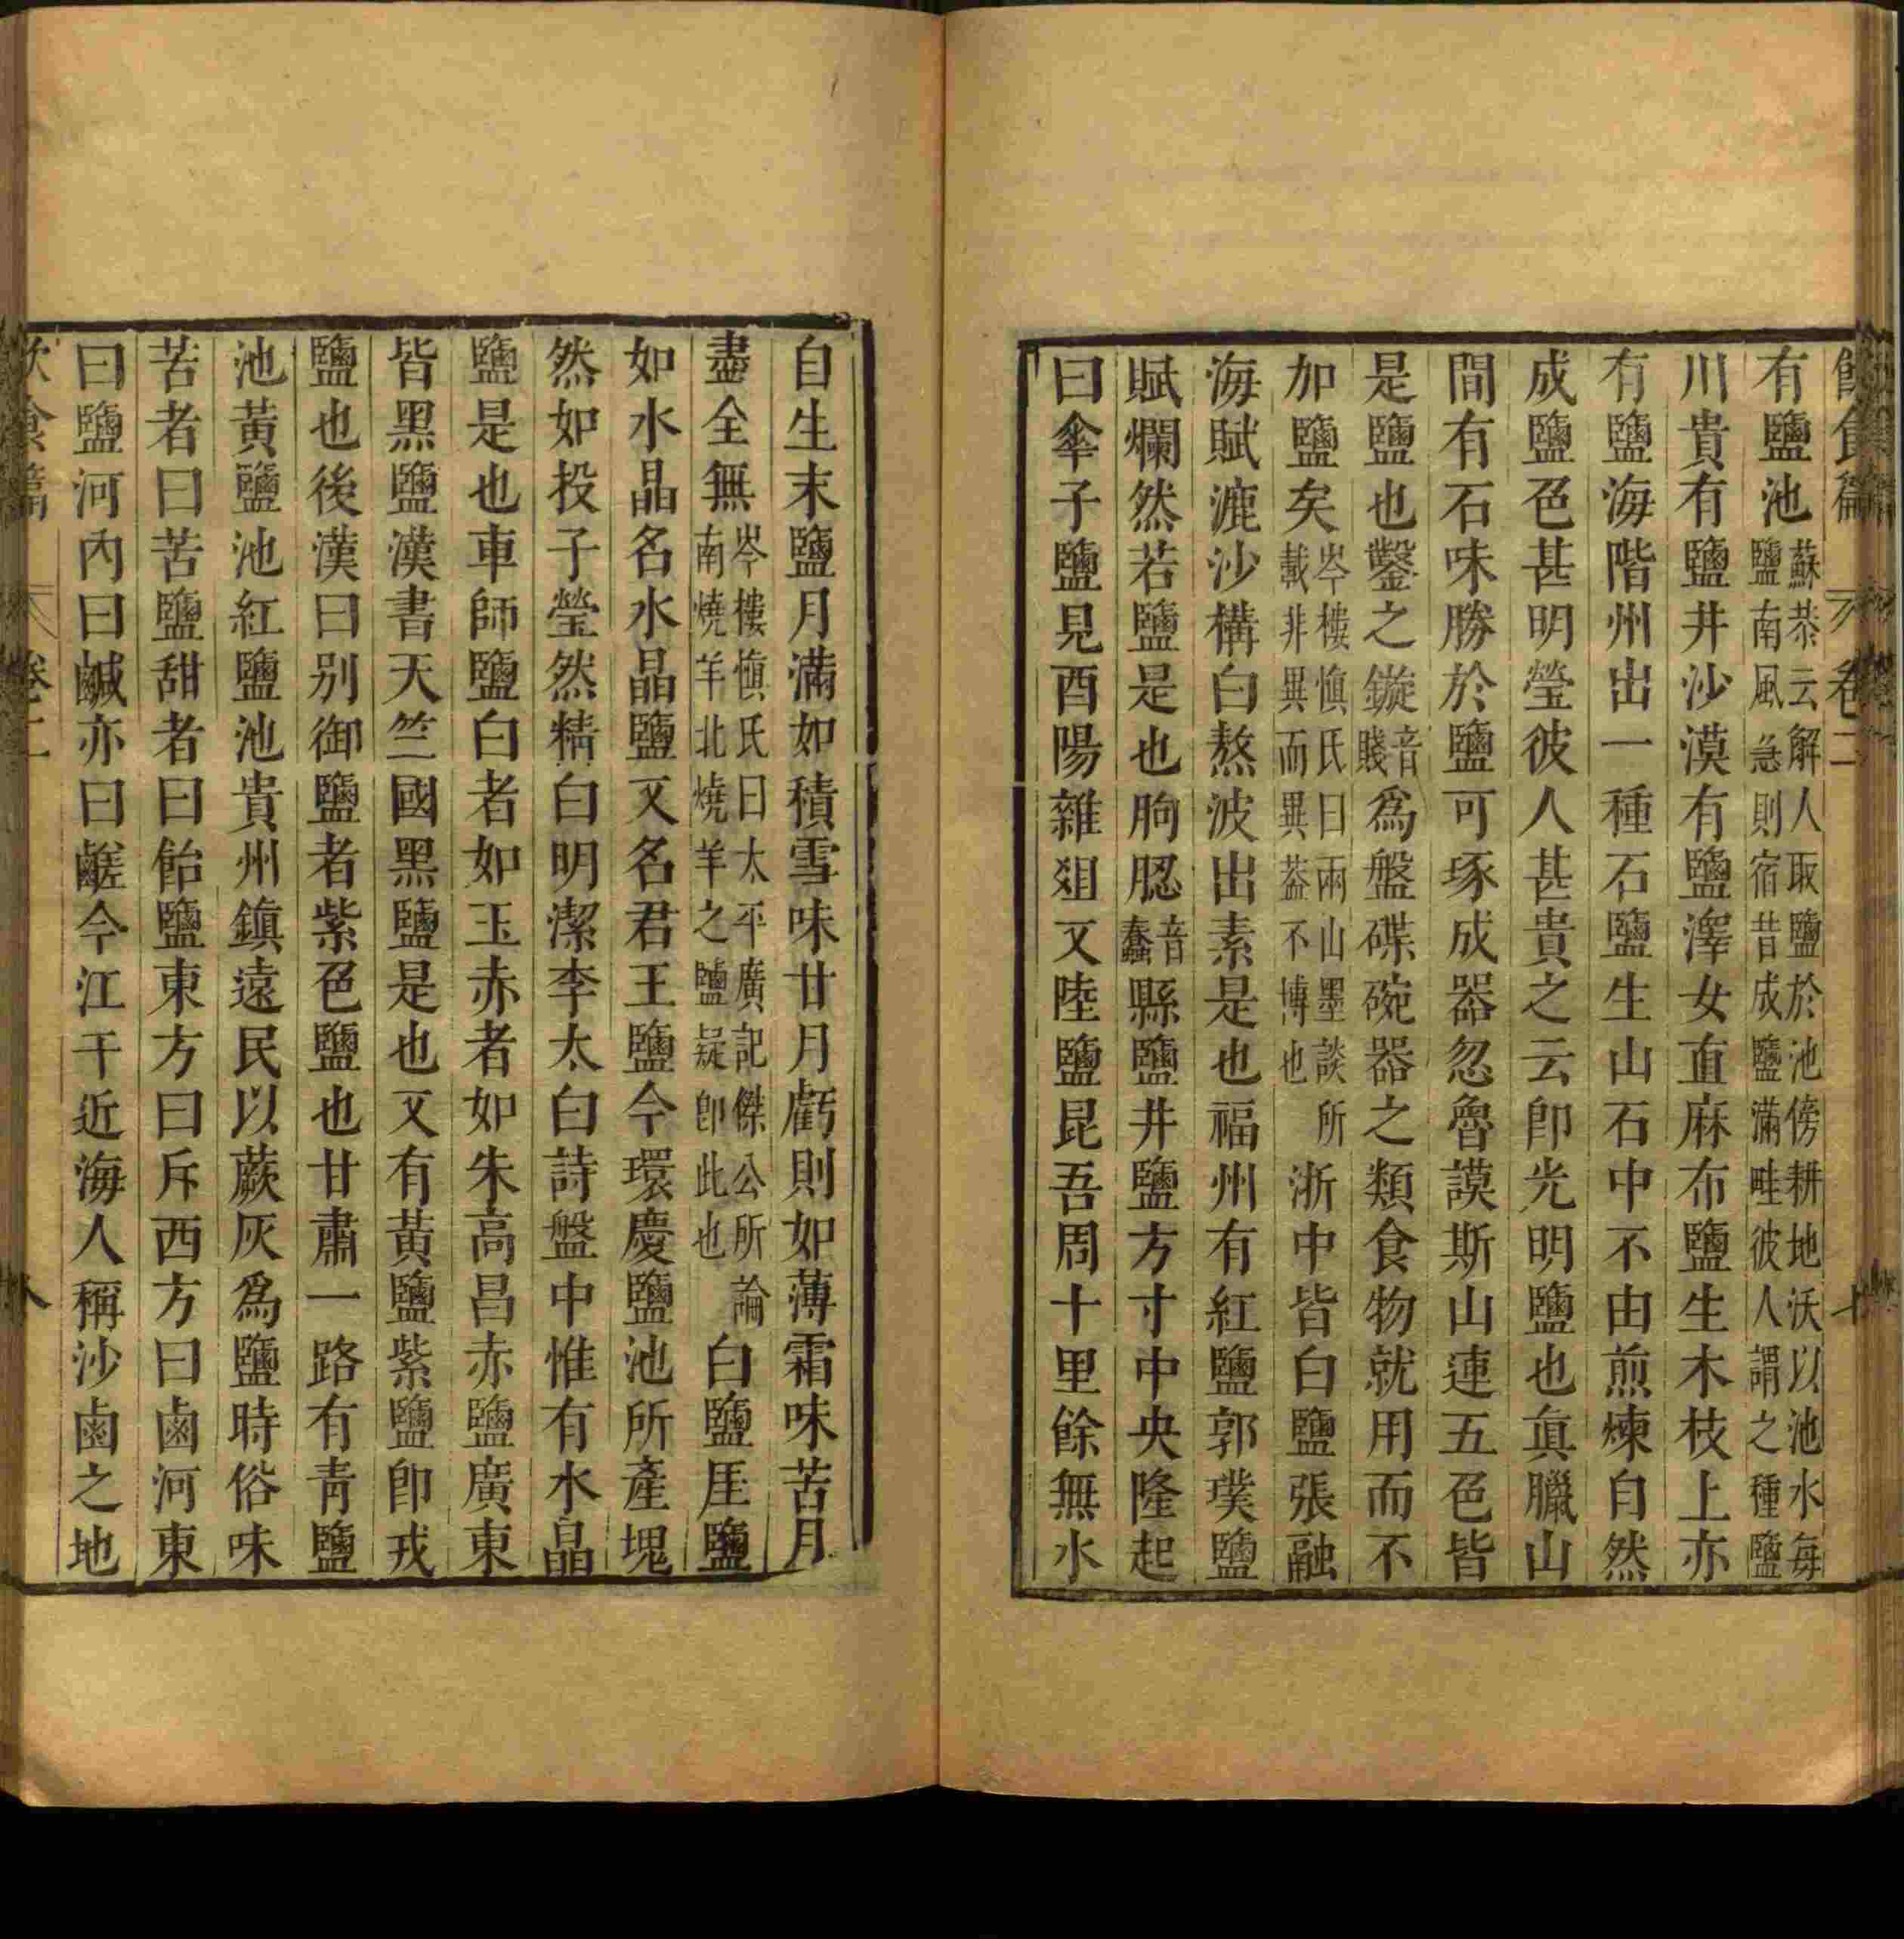 飲食篇 卷二 七
有鹽池蘇恭云解人取鹽於池傍耕地沃以池水每鹽南風急則宿昔成鹽滿畦彼人謂之種鹽
川貴有鹽井沙漠有鹽澤女直麻布鹽生木枝上亦
有鹽海階州出一種石鹽生山石中不由煎煉自然
成鹽色甚明瑩彼人甚貴之云卽光明鹽也眞臘山
間有石味勝於鹽可琢成器忽魯謨斯山連五色皆
是鹽也鑿之鏇音賤爲盤碟碗器之類食物就用而不
加鹽矣岑樓愼氏曰兩山墨談所載非異而異葢不博也浙中皆白鹽張融
海賦漉沙構白熬波出素是也福州有紅鹽郭璞鹽
賦爛然若鹽是也朐䏰音蠢縣鹽井鹽方寸中央隆起
曰傘子鹽見酉陽雜俎又陸鹽昆吾周十里餘無水
自生末鹽月滿如積雪味甘月虧則如薄霜味苦月
盡全無岑樓愼氏曰太平廣記傑公所論南燒羊北燒羊之鹽疑卽此也白鹽厓鹽
如水晶名水晶鹽又名君王鹽今環慶鹽池所產塊
然如投子瑩然精白明潔李太白詩盤中惟有水晶
鹽是也車師鹽白者如玉赤者如朱高昌赤鹽廣東
皆黑鹽漢書天竺國黑鹽是也又有黃鹽紫鹽卽戎
鹽也後漢曰别御鹽者紫色鹽也甘肅一路有靑鹽
池黃鹽池紅鹽池貴州鎭遠民以蕨灰爲鹽時俗味
苦者曰苦鹽甜者曰飴鹽東方曰斥西方曰鹵河東
曰鹽河內曰鹹亦曰鹺今江干近海人稱沙鹵之地
飲食篇 卷二 八